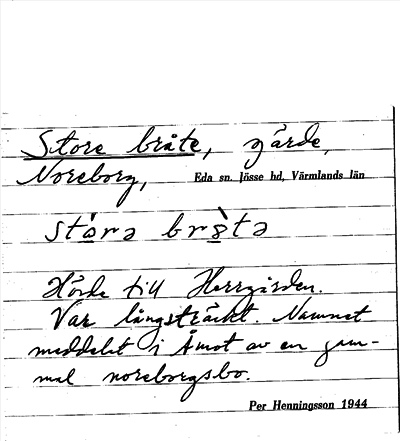 Store bråte, gärde,
Noreborg, Eda sn. Jösse hd, Värmlands län
stɔ́rə brɔ̀tə
Hörde till Herrgården.
Var långsträckt. Namnet
meddelat i Åmot av en gam-
mal noreborgsbo.
Per Henningsson 1944